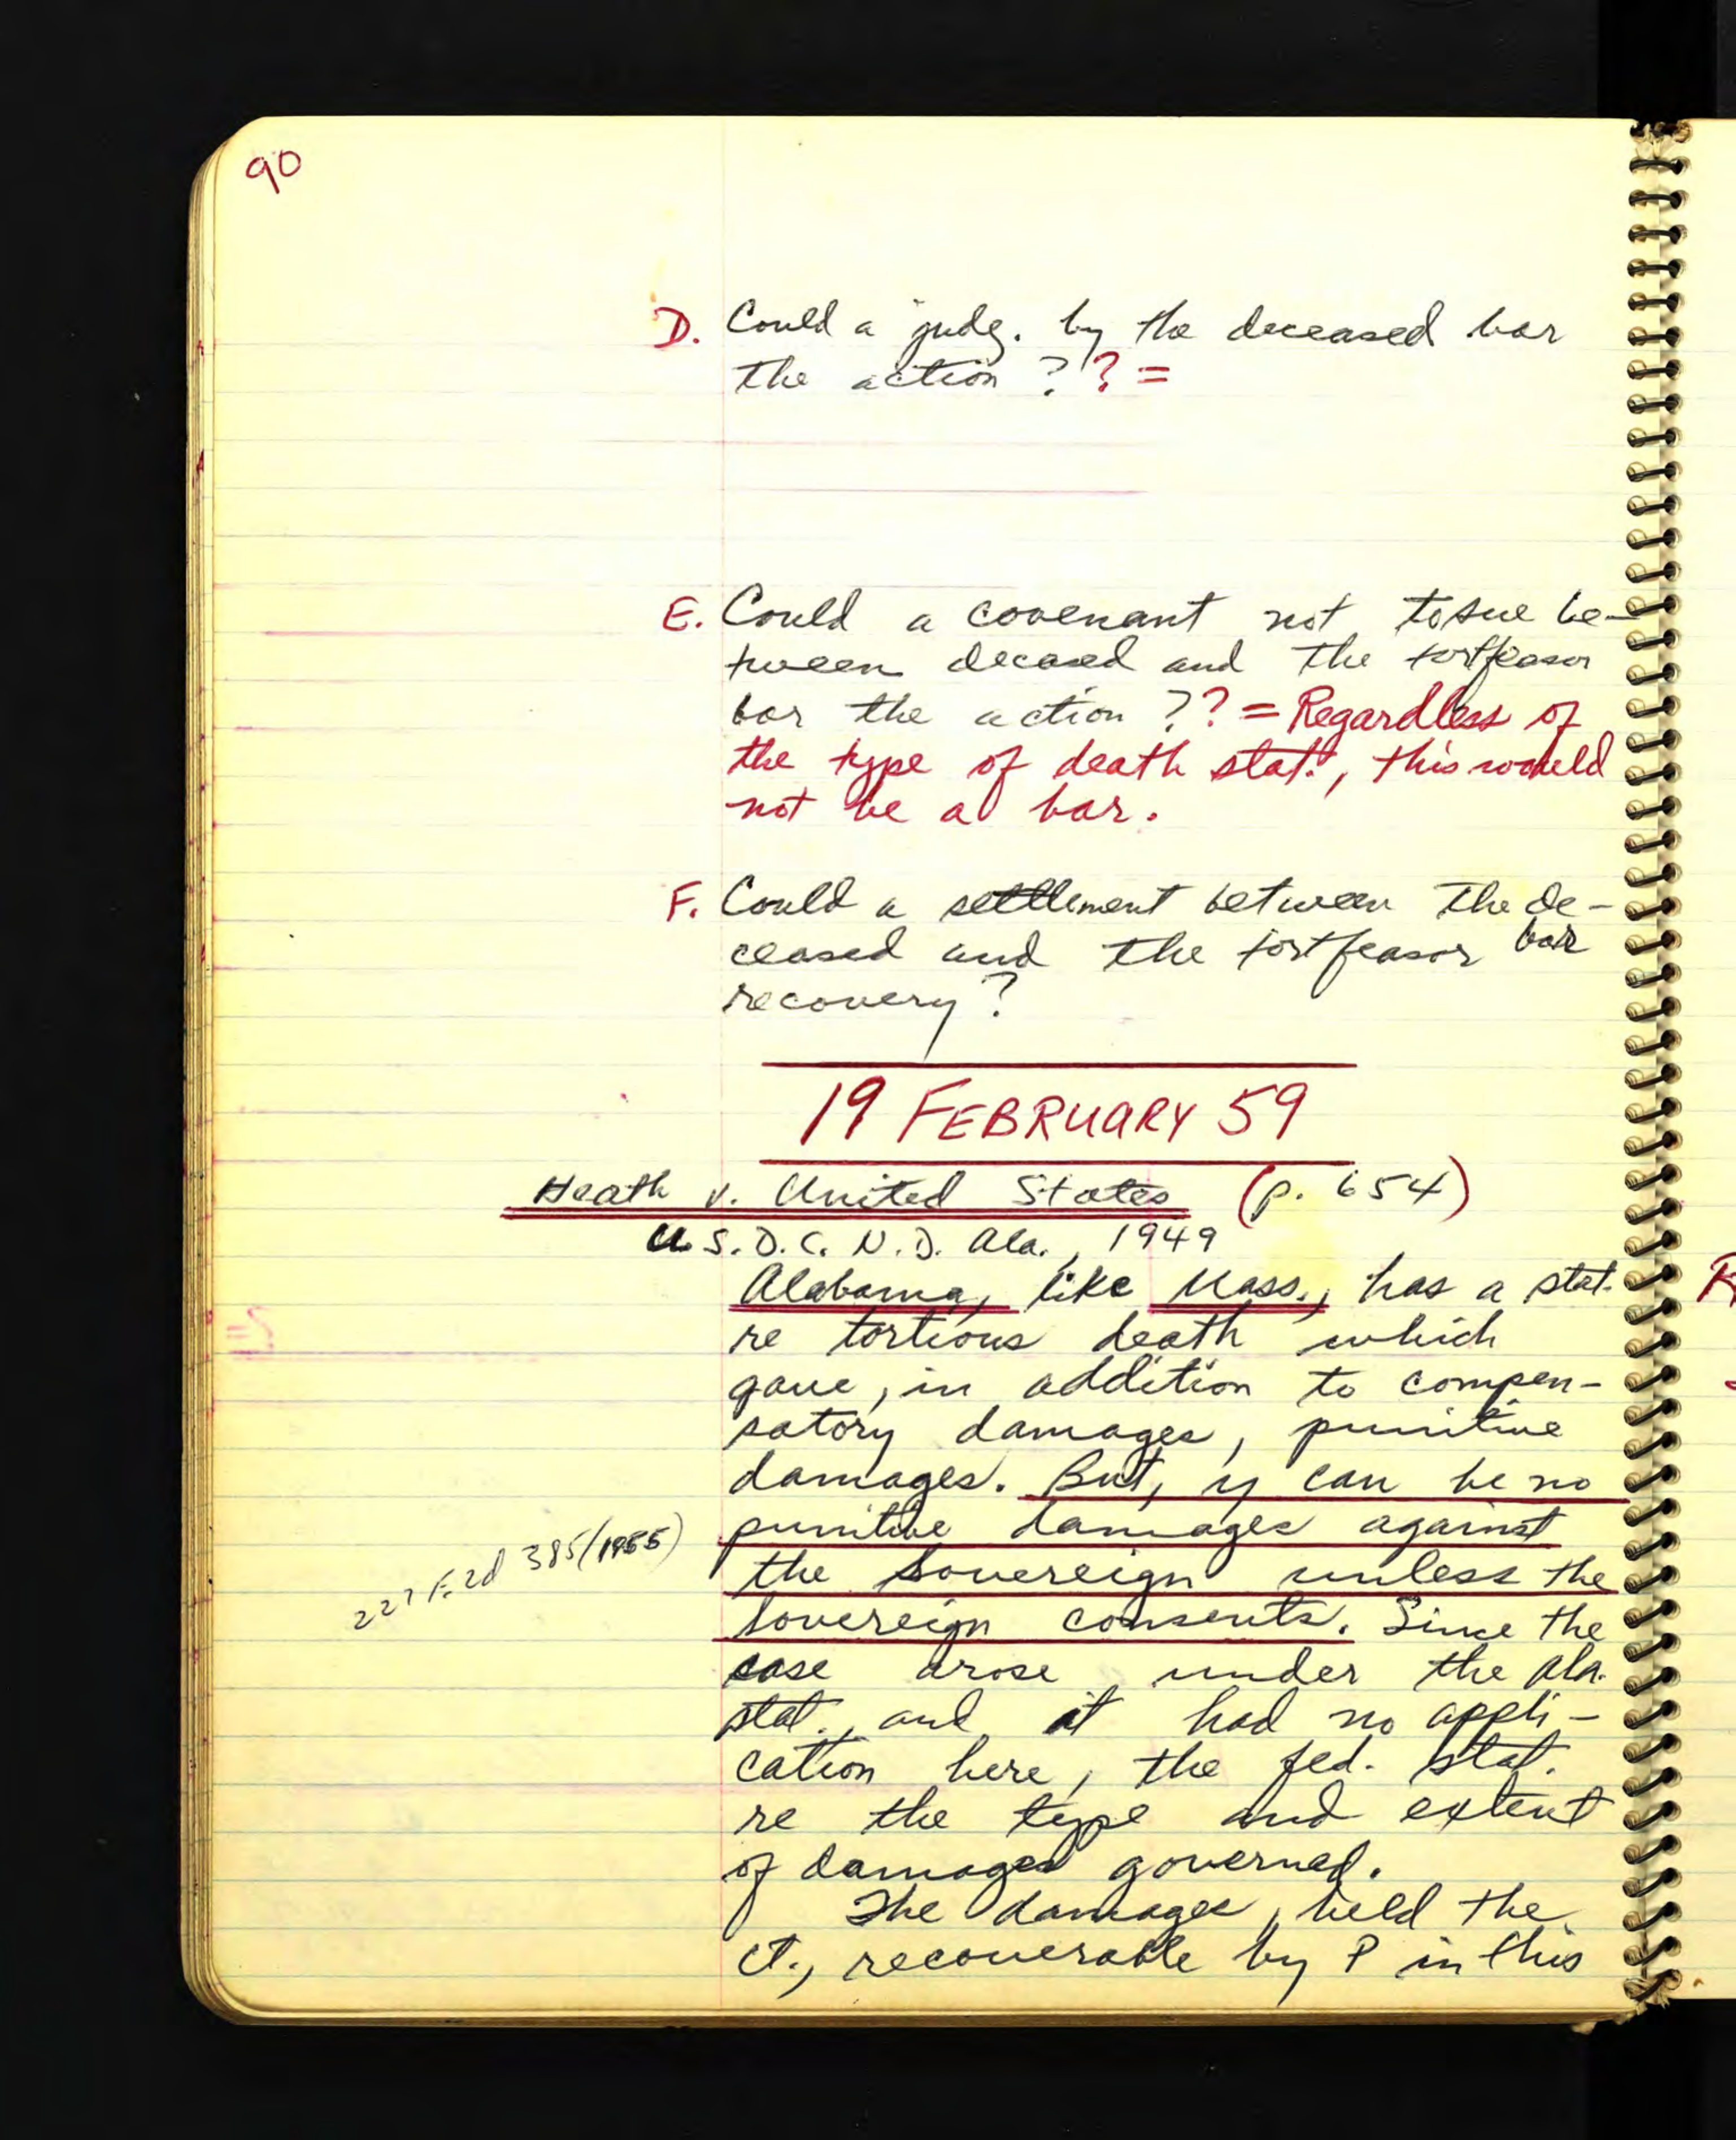 90
D. Could a judg. by the deceased bar
the action ?? =
E. Could a covenant not to sue be-
tween decased and the tortfeasor
bar the action ?? = Regardless of
the type of death stat., this would
not be a bar.
F. Could a settlement between the de-
ceased and the tortfeasor bar
recovery?
19 FEBRUARY 59
Heath v. United States (p. 654)
U.S.D.C. N.D. Ala., 1949
Alabama, like Mass., has a stat.
re tortious death which
gave, in addition to compen-
satory damages, punitive
damages. But, y can be no
punitive damages against
the sovereign unless the
sovereign consents. Since the
227 F.2d 385 (1955)
case arose under the Ala.
stat., and it had no appli-
cation here, the fed. stat.
re the type and extent
of damages governed.
The damages, held the
ct., recoverable by P in this